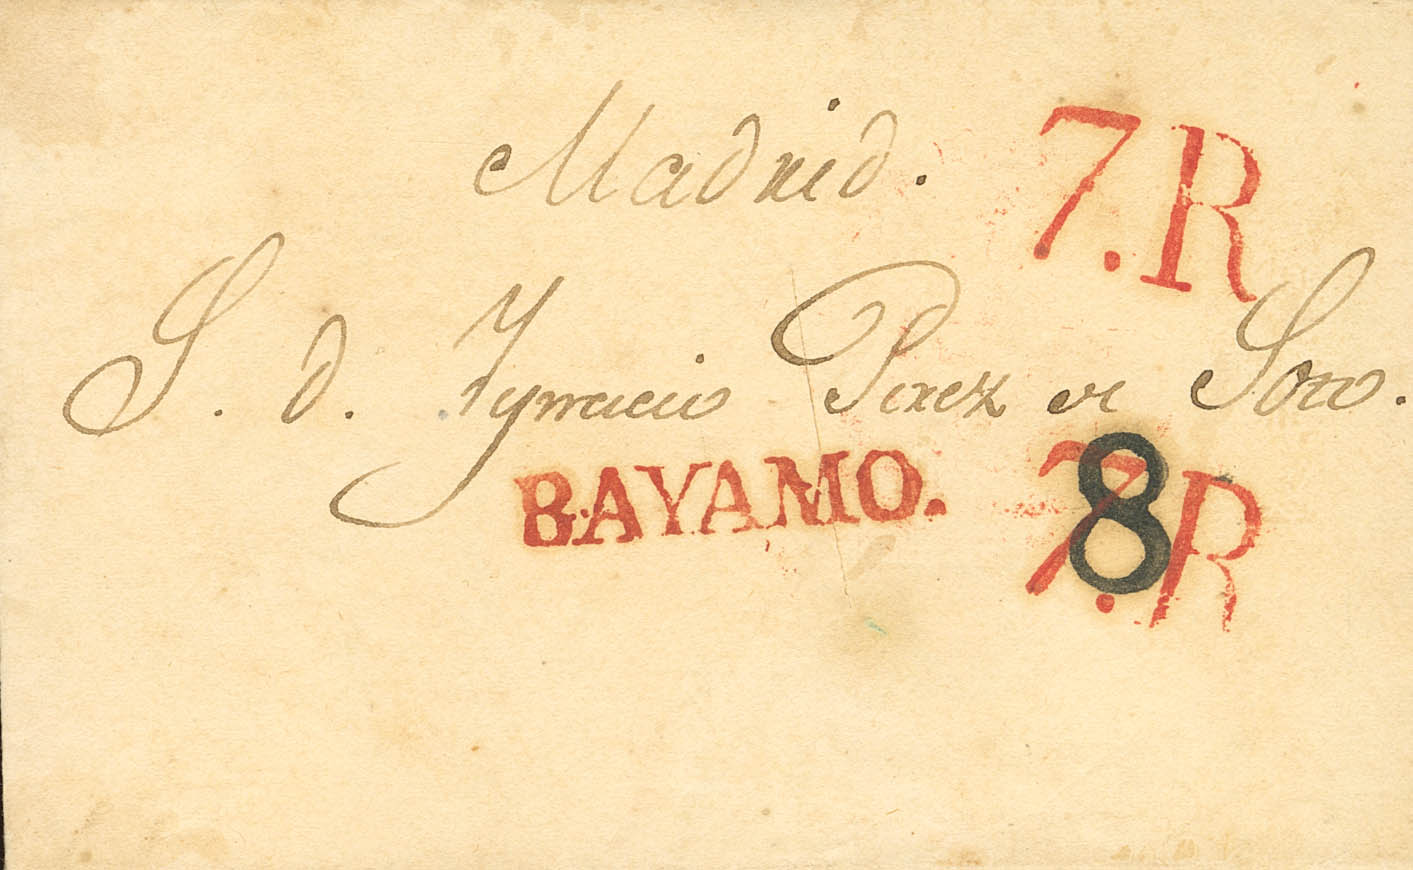 Madrid.
7.R
S. d. Ygnacio Perez de Soto.
BAYAMO.
7.R
8